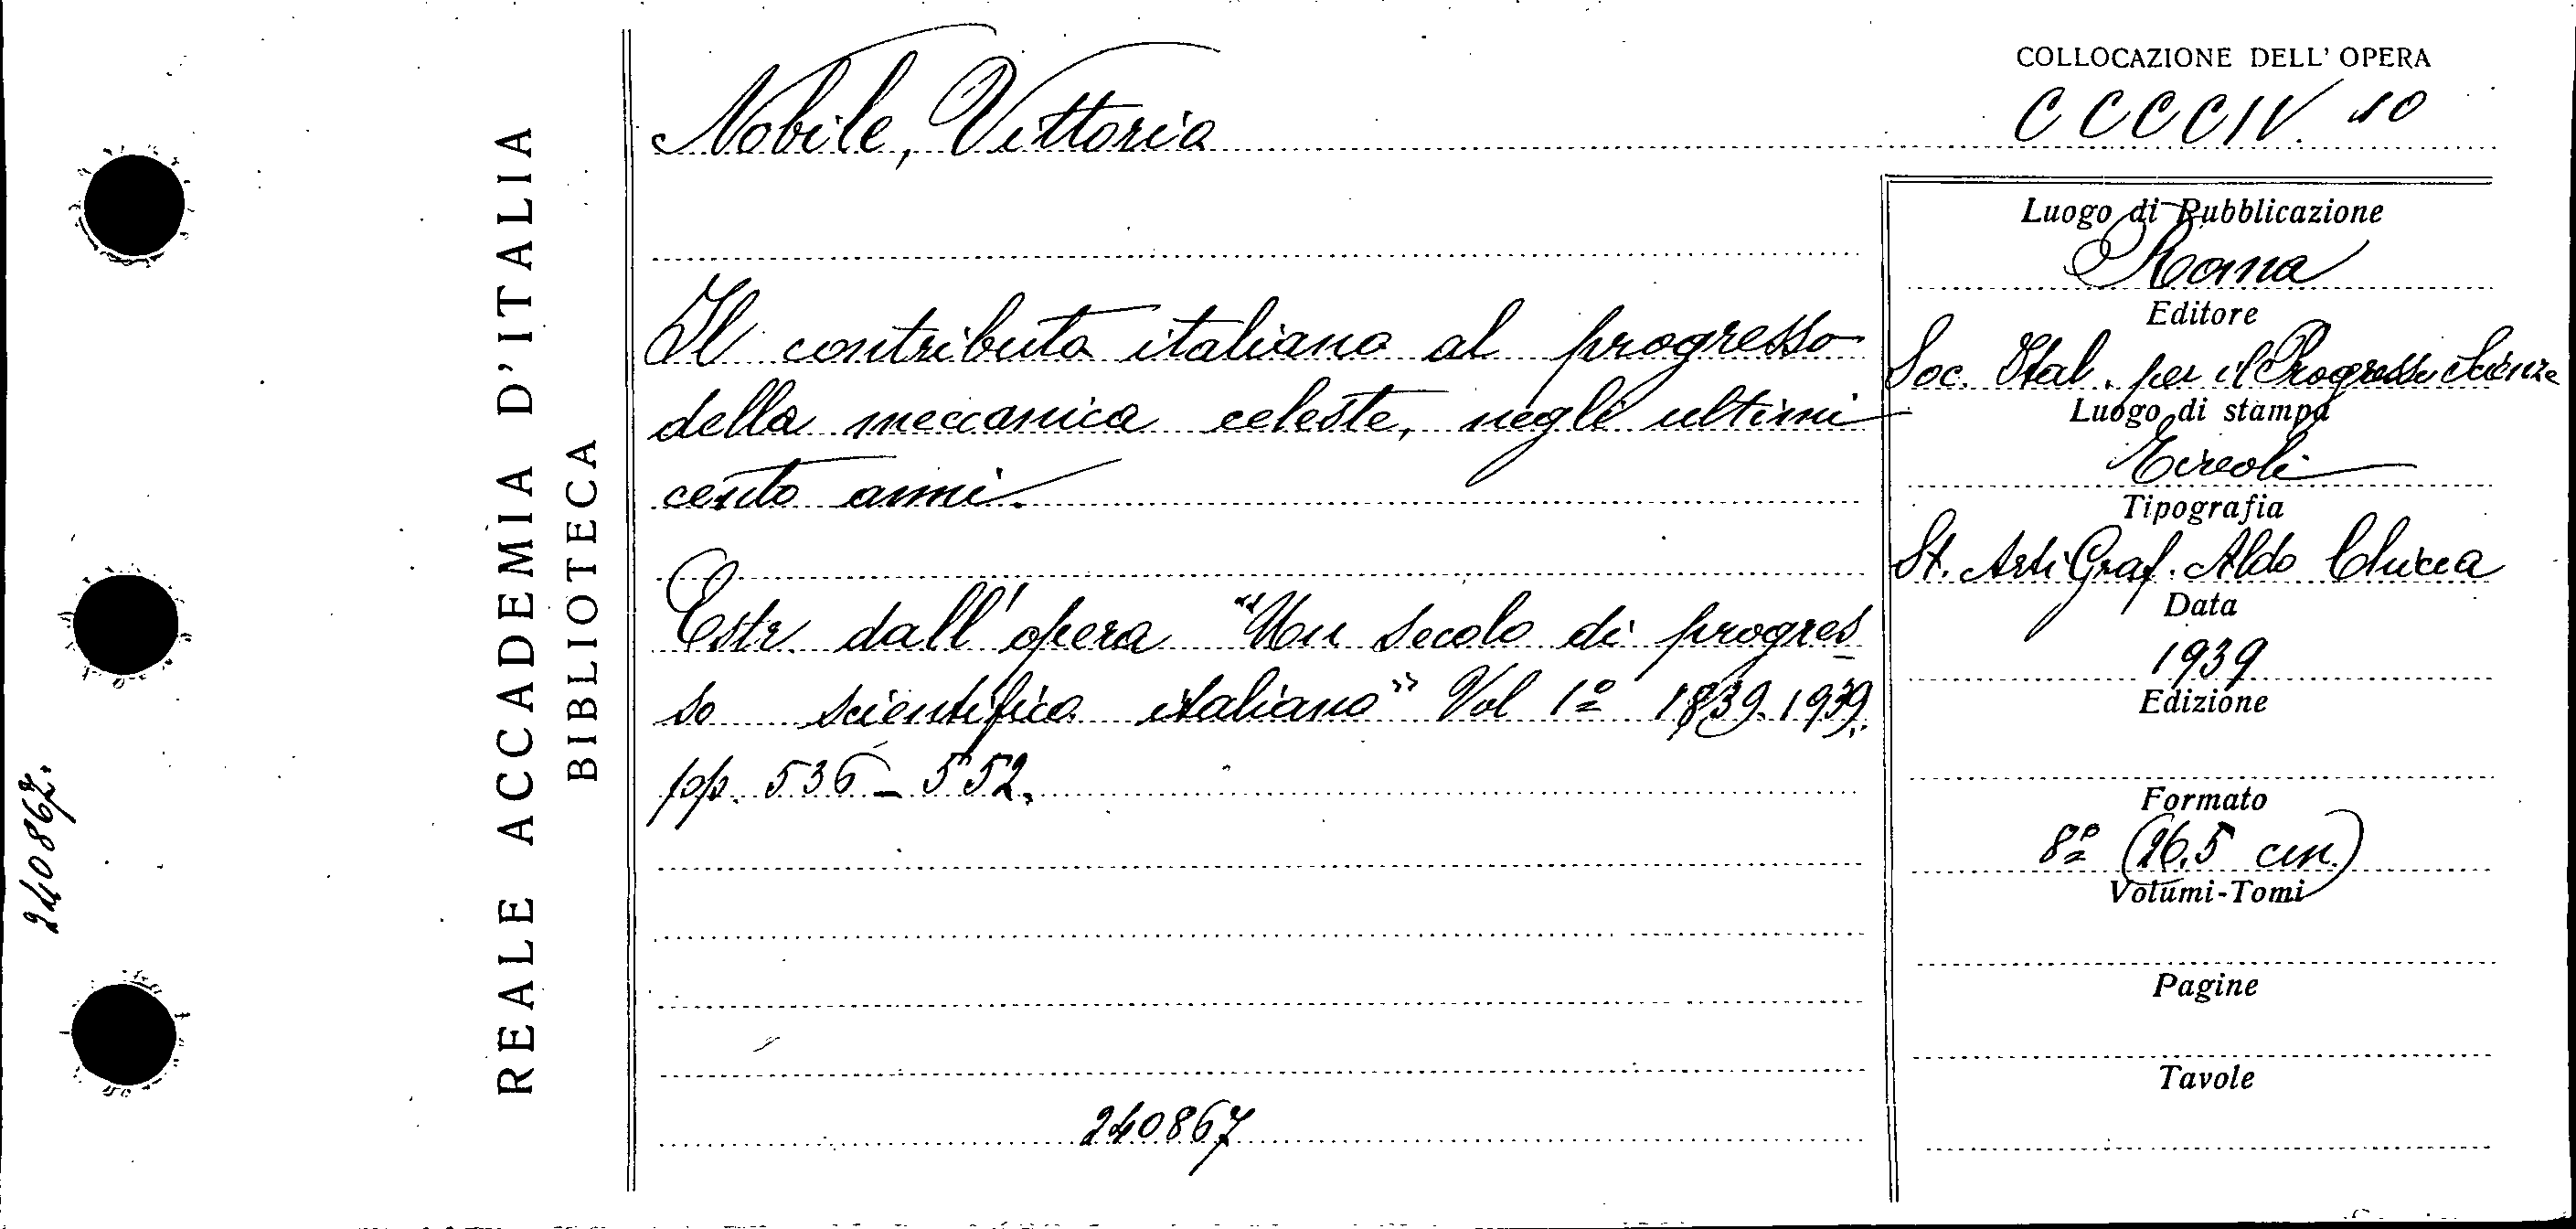 COLLOCAZIONE DELL' OPERA
CCCCIV. 10
Nobile, Vittorio
Il contributo italiano al progresso
della meccanica celeste, negli ultimi
cento anni.
Estr. dall' opera "Un secolo di progres
so scientifico italiano" Vol 1º 1839.1939.
pp. 536 – 552.
240867
Luogo di Pubblicazione
Roma
Editore
Soc. Ital. per il Progresso Scienze
Luogo di stampa
Tivoli
Tipografia
St. Arti Graf. Aldo Chicca
Data
1939
Edizione
Formato
8º (26,5 cm.)
Volumi-Tomi
Pagine
Tavole
REALE ACCADEMIA D'ITALIA
BIBLIOTECA
240867.